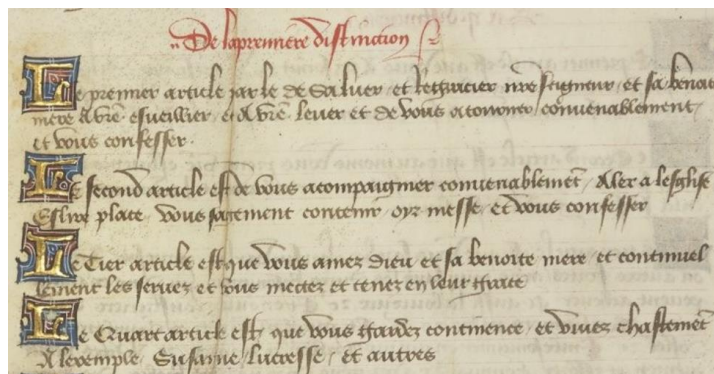 De la premiere distinction
Le premier article parle de saluer et regracier nre seigneur et sa benoite
mere A vre esueillier et A vre leuer et de vous atourner conuenablement
et vous confesser.
Le second article est de vous acompaigner conuenablemet Aler a lesglise
Eslire place vous sagement contenir oyr messe et vous confesser
Le Tier article est que vous amez dieu et sa benoite mere et continuel
lement les seruez et vous mettez et tenez en leur grace
Le Quart article est que vous gardez continence et viuez chastemet
A lexemple Susanne lucresse et autres